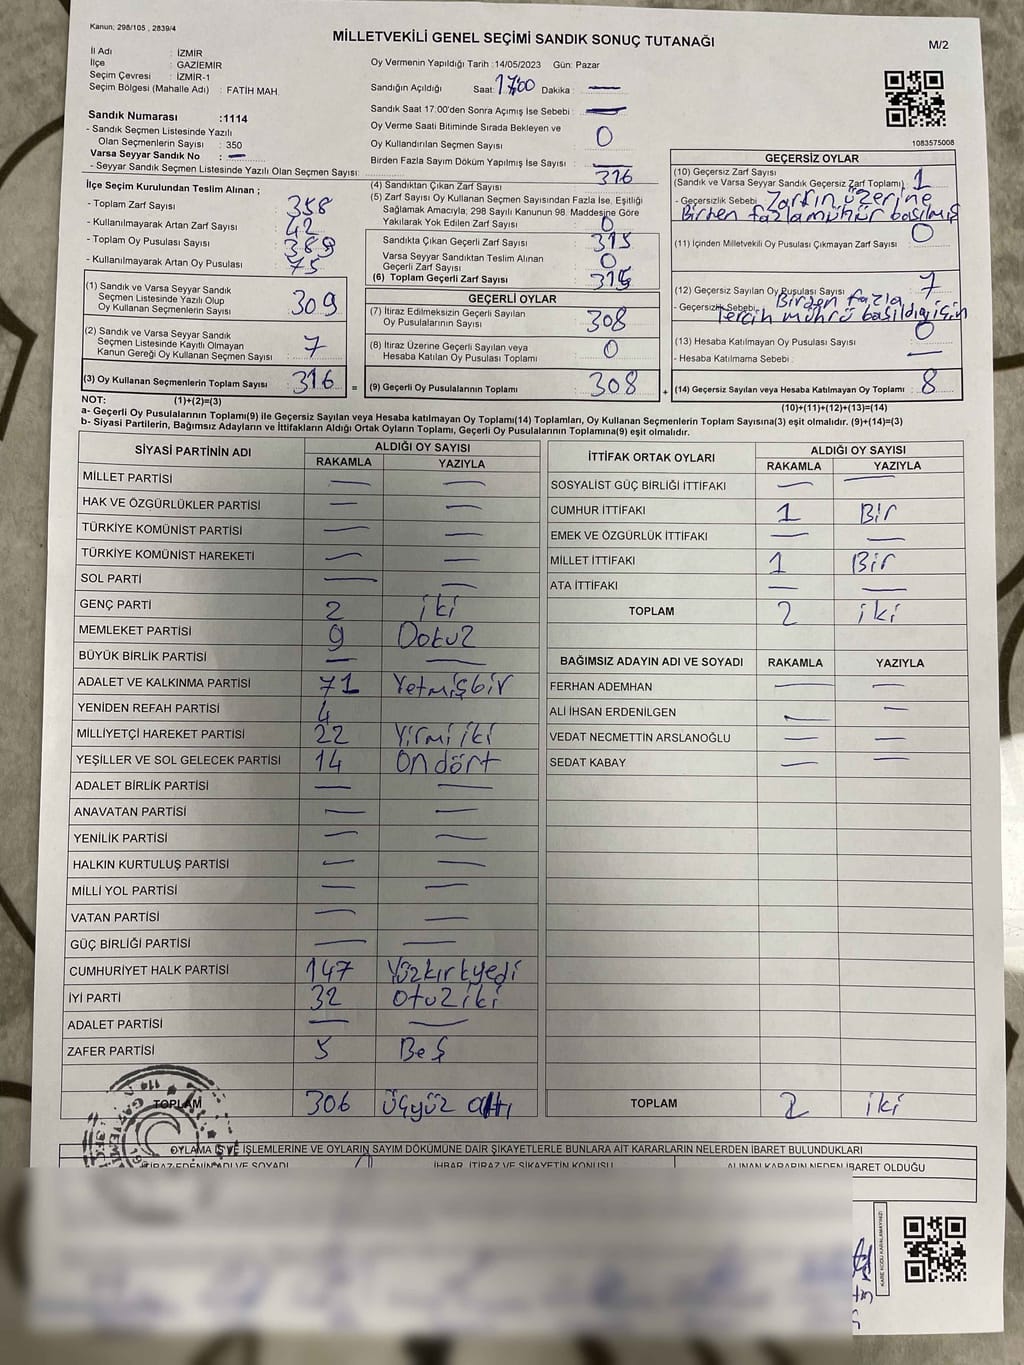 Kanun; 298/105 , 2839/4
MİLLETVEKİLİ GENEL SEÇİMİ SANDIK SONUÇ TUTANAĞI
M/2
İl Adı : İZMİR
İlçe : GAZİEMİR
Seçim Çevresi : İZMİR-1
Seçim Bölgesi (Mahalle Adı) : FATİH MAH.
Sandık Numarası :1114
- Sandık Seçmen Listesinde Yazılı
Olan Seçmenlerin Sayısı : 350
Varsa Seyyar Sandık No : —
- Seyyar Sandık Seçmen Listesinde Yazılı Olan Seçmen Sayısı:
Oy Vermenin Yapıldığı Tarih :14/05/2023 Gün: Pazar
Sandığın Açıldığı Saat: 17:00 Dakika : —
Sandık Saat 17.00'den Sonra Açımış İse Sebebi : —
Oy Verme Saati Bitiminde Sırada Bekleyen ve
Oy Kullandırılan Seçmen Sayısı : 0
Birden Fazla Sayım Döküm Yapılmış İse Sayısı : —
1083575008
İlçe Seçim Kurulundan Teslim Alınan ;
- Toplam Zarf Sayısı : 358
- Kullanılmayarak Artan Zarf Sayısı : 42
- Toplam Oy Pusulası Sayısı : 389
- Kullanılmayarak Artan Oy Pusulası : 75
(1) Sandık ve Varsa Seyyar Sandık
Seçmen Listesinde Yazılı Olup
Oy Kullanan Seçmenlerin Sayısı : 309
(2) Sandık ve Varsa Seyyar Sandık
Seçmen Listesinde Kayıtlı Olmayan
Kanun Gereği Oy Kullanan Seçmen Sayısı : 7
(3) Oy Kullanan Seçmenlerin Toplam Sayısı : 316
(4) Sandıktan Çıkan Zarf Sayısı : 316
(5) Zarf Sayısı Oy Kullanan Seçmen Sayısından Fazla İse, Eşitliği
Sağlamak Amacıyla; 298 Sayılı Kanunun 98. Maddesine Göre
Yakılarak Yok Edilen Zarf Sayısı : 0
Sandıkta Çıkan Geçerli Zarf Sayısı : 315
Varsa Seyyar Sandıktan Teslim Alınan
Geçerli Zarf Sayısı : 0
(6) Toplam Geçerli Zarf Sayısı : 315
GEÇERLİ OYLAR
(7) İtiraz Edilmeksizin Geçerli Sayılan
Oy Pusulalarının Sayısı : 308
(8) İtiraz Üzerine Geçerli Sayılan veya
Hesaba Katılan Oy Pusulası Toplamı : 0
= (9) Geçerli Oy Pusulalarının Toplamı : 308
GEÇERSİZ OYLAR
(10) Geçersiz Zarf Sayısı
(Sandık ve Varsa Seyyar Sandık Geçersiz Zarf Toplamı) : 1
- Geçersizlik Sebebi : Zarfın üzerine
Birden fazla mühür basılmış
(11) İçinden Milletvekili Oy Pusulası Çıkmayan Zarf Sayısı : 0
(12) Geçersiz Sayılan Oy Pusulası Sayısı : 7
- Geçersizlik Sebebi : Birden fazla
Tercih mührü basıldığı için
(13) Hesaba Katılmayan Oy Pusulası Sayısı : 0
- Hesaba Katılmama Sebebi : —
+ (14) Geçersiz Sayılan veya Hesaba Katılmayan Oy Toplamı : 8
NOT: (1)+(2)=(3)
(10)+(11)+(12)+(13)=(14)
a- Geçerli Oy Pusulalarının Toplamı(9) ile Geçersiz Sayılan veya Hesaba katılmayan Oy Toplamı(14) Toplamları, Oy Kullanan Seçmenlerin Toplam Sayısına(3) eşit olmalıdır. (9)+(14)=(3)
b- Siyasi Partilerin, Bağımsız Adayların ve İttifakların Aldığı Ortak Oyların Toplamı, Geçerli Oy Pusulalarının Toplamına(9) eşit olmalıdır.
SİYASİ PARTİNİN ADI ALDIĞI OY SAYISI
RAKAMLA YAZIYLA
MİLLET PARTİSİ — —
HAK VE ÖZGÜRLÜKLER PARTİSİ — —
TÜRKİYE KOMÜNİST PARTİSİ — —
TÜRKİYE KOMÜNİST HAREKETİ — —
SOL PARTİ — —
GENÇ PARTİ 2 iki
MEMLEKET PARTİSİ 9 Dokuz
BÜYÜK BİRLİK PARTİSİ — —
ADALET VE KALKINMA PARTİSİ 71 Yetmişbir
YENİDEN REFAH PARTİSİ 4
MİLLİYETÇİ HAREKET PARTİSİ 22 Yirmi iki
YEŞİLLER VE SOL GELECEK PARTİSİ 14 On dört
ADALET BİRLİK PARTİSİ — —
ANAVATAN PARTİSİ — —
YENİLİK PARTİSİ — —
HALKIN KURTULUŞ PARTİSİ — —
MİLLİ YOL PARTİSİ — —
VATAN PARTİSİ — —
GÜÇ BİRLİĞİ PARTİSİ — —
CUMHURİYET HALK PARTİSİ 147 Yüzkırkyedi
İYİ PARTİ 32 Otuz iki
ADALET PARTİSİ — —
ZAFER PARTİSİ 5 Beş
TOPLAM 306 Üçyüz altı
İTTİFAK ORTAK OYLARI ALDIĞI OY SAYISI
RAKAMLA YAZIYLA
SOSYALİST GÜÇ BİRLİĞİ İTTİFAKI — —
CUMHUR İTTİFAKI 1 Bir
EMEK VE ÖZGÜRLÜK İTTİFAKI — —
MİLLET İTTİFAKI 1 Bir
ATA İTTİFAKI — —
TOPLAM 2 iki
BAĞIMSIZ ADAYIN ADI VE SOYADI RAKAMLA YAZIYLA
FERHAN ADEMHAN — —
ALİ İHSAN ERDENİLGEN — —
VEDAT NECMETTİN ARSLANOĞLU — —
SEDAT KABAY — —
TOPLAM 2 iki
OYLAMA İŞ VE İŞLEMLERİNE VE OYLARIN SAYIM DÖKÜMÜNE DAİR ŞİKAYETLERLE BUNLARA AİT KARARLARIN NELERDEN İBARET BULUNDUKLARI
İTİRAZ EDENİN ADI VE SOYADI İHBAR, İTİRAZ VE ŞİKAYETİN KONUSU ALINAN KARARIN NEDEN İBARET OLDUĞU
KARE KODU KARALAMAYINIZ!